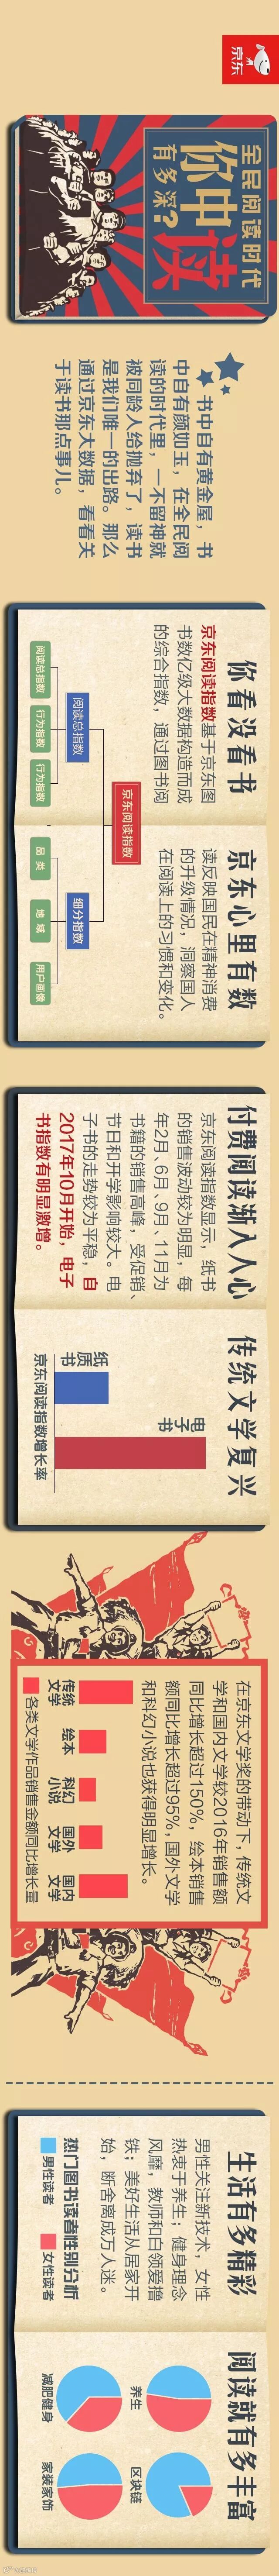 京东
全民阅读时代
你中读
有多深?
书中自有黄金屋，书
中自有颜如玉，在全民阅
读的时代里，一不留神就
被同龄人给抛弃了，读书
是我们唯一的出路。那么
通过京东大数据，看看关
于读书那点事儿。
你看没看书 京东心里有数
京东阅读指数基于京东图
书数亿级大数据构造而成
的综合指数，通过图书阅
读反映国民在精神消费
的升级情况，洞察国人
在阅读上的习惯和变化。
京东阅读指数
阅读总指数
细分指数
阅读总指数
行为指数
行为指数
品 类
地 域
用户画像
付费阅读渐入人心 传统文学复兴
京东阅读指数显示，纸书
的销售波动较为明显，每
年2月、6月、9月、11月为
书籍的销售高峰，受促销、
节日和开学影响较大。电
子书的走势较为平稳，自
2017年10月开始，电子
书指数有明显激增。
纸质书
电子书
京东阅读指数增长率
在京东文学奖的带动下，传统文
学和国内文学较2016年销售额
同比增长超过150%，绘本销售
额同比增长超过95%，国外文学
和科幻小说也获得明显增长。
传统文学
绘本
科幻小说
国外文学
国内文学
各类文学作品销售金额同比增长量
生活有多精彩 阅读就有多丰富
男性关注新技术，女性
热衷于养生；健身理念
风靡，教师和白领爱撸
铁；美好生活从居家开
始，断舍离成万人迷。
热门图书读者性别分析
男性读者
女性读者
养生
区块链
减肥健身
家装家饰